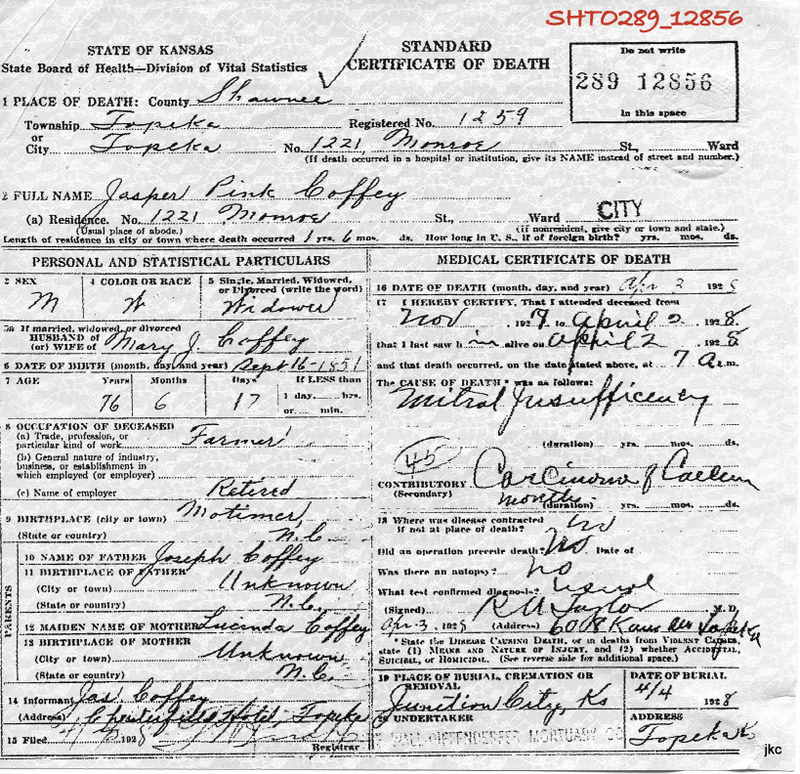 SHT0289_12856
STATE OF KANSAS
State Board of Health—Division of Vital Statistics
STANDARD
CERTIFICATE OF DEATH
Do not write
289 12856
In this space
1 PLACE OF DEATH: County Shawnee
Township Topeka Registered No. 1259
or
City Topeka No. 1221 Monroe St., Ward
(If death occurred in a hospital or institution, give its NAME instead of street and number.)
2 FULL NAME Jasper Pink Coffey
(a) Residence. No. 1221 Monroe St., Ward CITY
(Usual place of abode.) (If nonresident, give city or town and state.)
Length of residence in city or town where death occurred 1 yrs. 6 mos. ds. How long in U. S., if of foreign birth? yrs. mos. ds.
PERSONAL AND STATISTICAL PARTICULARS
3 SEX
M
4 COLOR OR RACE
W
5 Single, Married, Widowed, or Divorced (write the word)
Widower
5a If married, widowed, or divorced
HUSBAND of
(or) WIFE of Mary J. Coffey
6 DATE OF BIRTH (month, day, and year) Sept 16-1851
7 AGE Years Months Days If LESS than
76 6 17 1 day ... hrs.
or ... min.
8 OCCUPATION OF DECEASED
(a) Trade, profession, or
particular kind of work Farmer
(b) General nature of industry,
business, or establishment in
which employed (or employer)
(c) Name of employer Retered
9 BIRTHPLACE (city or town) Motimer,
(State or country) N.C.
PARENTS
10 NAME OF FATHER Joseph Coffey
11 BIRTHPLACE OF FATHER
(City or town) Unknown
(State or country) N.C.
12 MAIDEN NAME OF MOTHER Lucinda Coffey
13 BIRTHPLACE OF MOTHER
(City or town) Unknown
(State or country) N.C.
14 Informant Jas Coffey
(Address) Chesterfield Hotel, Topeka
15 Filed 1928
Registrar
MEDICAL CERTIFICATE OF DEATH
16 DATE OF DEATH (month, day, and year) Apr 2 1928
17 I HEREBY CERTIFY, That I attended deceased from
Nov, 1927 to April 2 1928
that I last saw h im alive on April 2 1928
and that death occurred, on the date stated above, at 7 A.m.
The CAUSE OF DEATH* was as follows:
Mitral Insufficency
(duration) yrs. mos. ds.
45
CONTRIBUTORY Carcinoma of Caecum
(Secondary) months (duration) yrs. mos. ds.
18 Where was disease contracted
if not at place of death? no
Did an operation precede death? No Date of
Was there an autopsy? no
What test confirmed diagnosis? usual
(Signed) M. D.
Apr-3, 1928 (Address)
*State the DISEASE CAUSING DEATH, or in deaths from VIOLENT CAUSES, state (1) MEANS AND NATURE OF INJURY, and (2) whether ACCIDENTAL, SUICIDAL, or HOMICIDAL. (See reverse side for additional space.)
19 PLACE OF BURIAL, CREMATION OR
REMOVAL
Junction City, Ks
DATE OF BURIAL
4/4 1928
20 UNDERTAKER
MORTUARY CO
ADDRESS
Topeka K
jkc